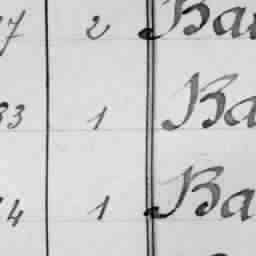 7 2 Ba
33 1 Ba
4 1 Ba